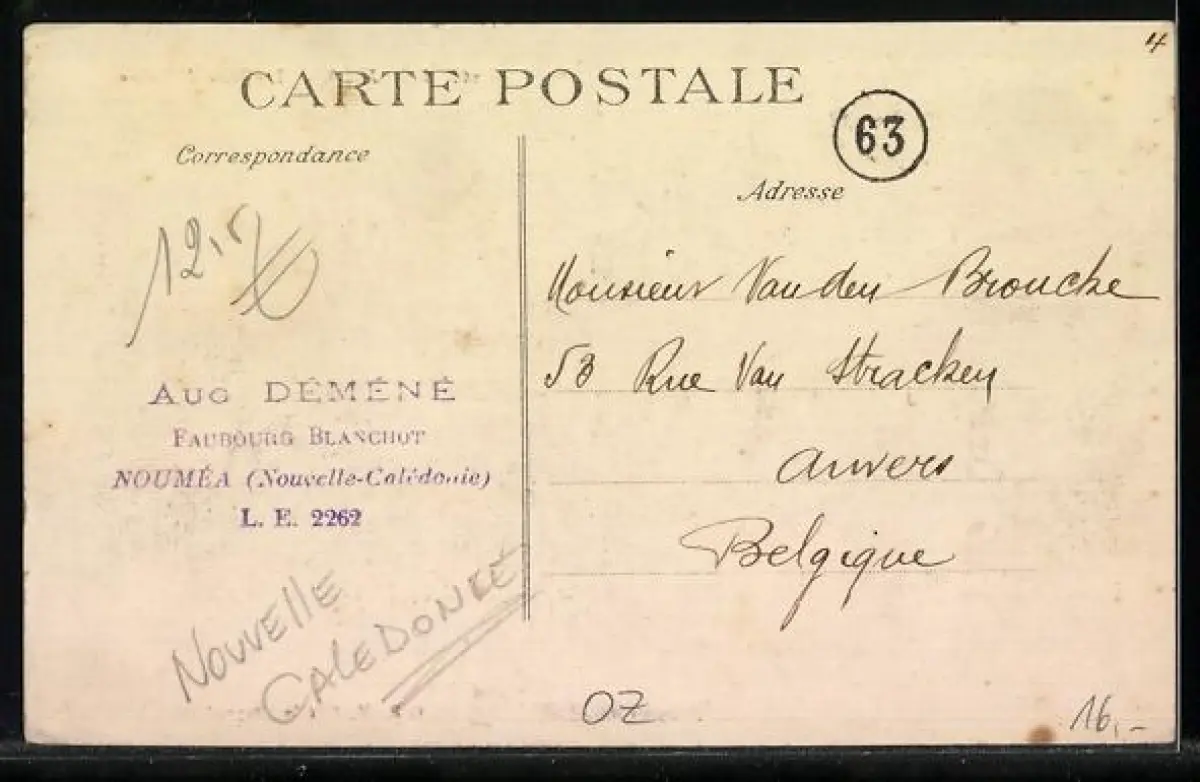 CARTE POSTALE
63
4
Correspondance
Adresse
12,5
Aug DÉMÉNÉ
Faubourg Blanchot
NOUMÉA (Nouvelle-Calédonie)
L. E. 2262
Monsieur Van den Broucke
53 Rue Van Stracken
Anvers
Belgique
NOUVELLE
CALEDONIE
OZ
16,-